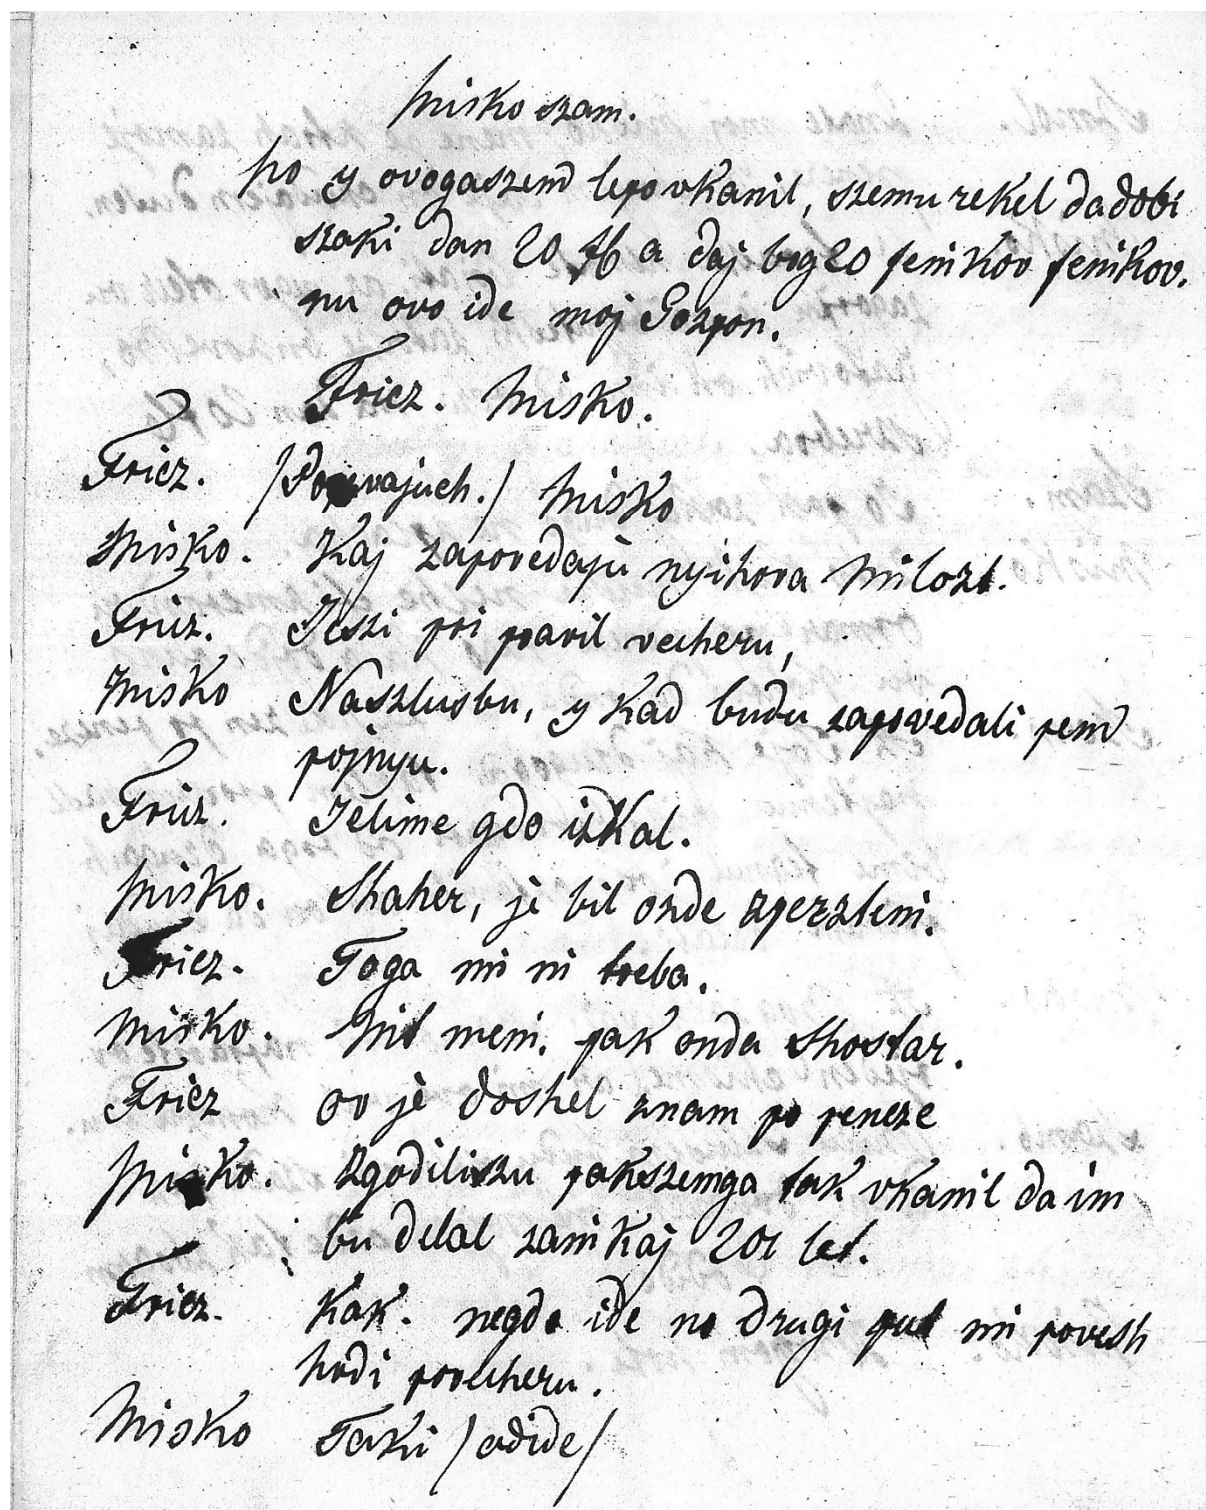 Misko szam.
no y ovogaszem lepo vkanil, szemu rekel da dobi
szaki dan 20 a daj bog 20 fenikov fenikov.
nu ovo ide moj Gozpon.
Fricz. Misko.
Fricz. /Pozvajuch./ Misko
Misko. Kaj zapovedaju nyihova Milozt.
Fricz. Jeszi pri pravil vecheru,
Misko Naszlusbu, y kad budu zapovedali pem
pojnyu.
Fricz. Jelime gdo izkal.
Misko. Shaher, je bil ozde zperzteni.
Fricz. Toga mi ni treba.
Misko. Nit meni. pak onda Shostar.
Fricz ov je doshel znam po peneze
Misko. Zgodiliszu pakszemga tak vkanil da im
bu delal zanikaj 201 let.
Fricz. Kak. negdo ide no drugi put mi povesh
hodi povecheru.
Misko Taki /odide/